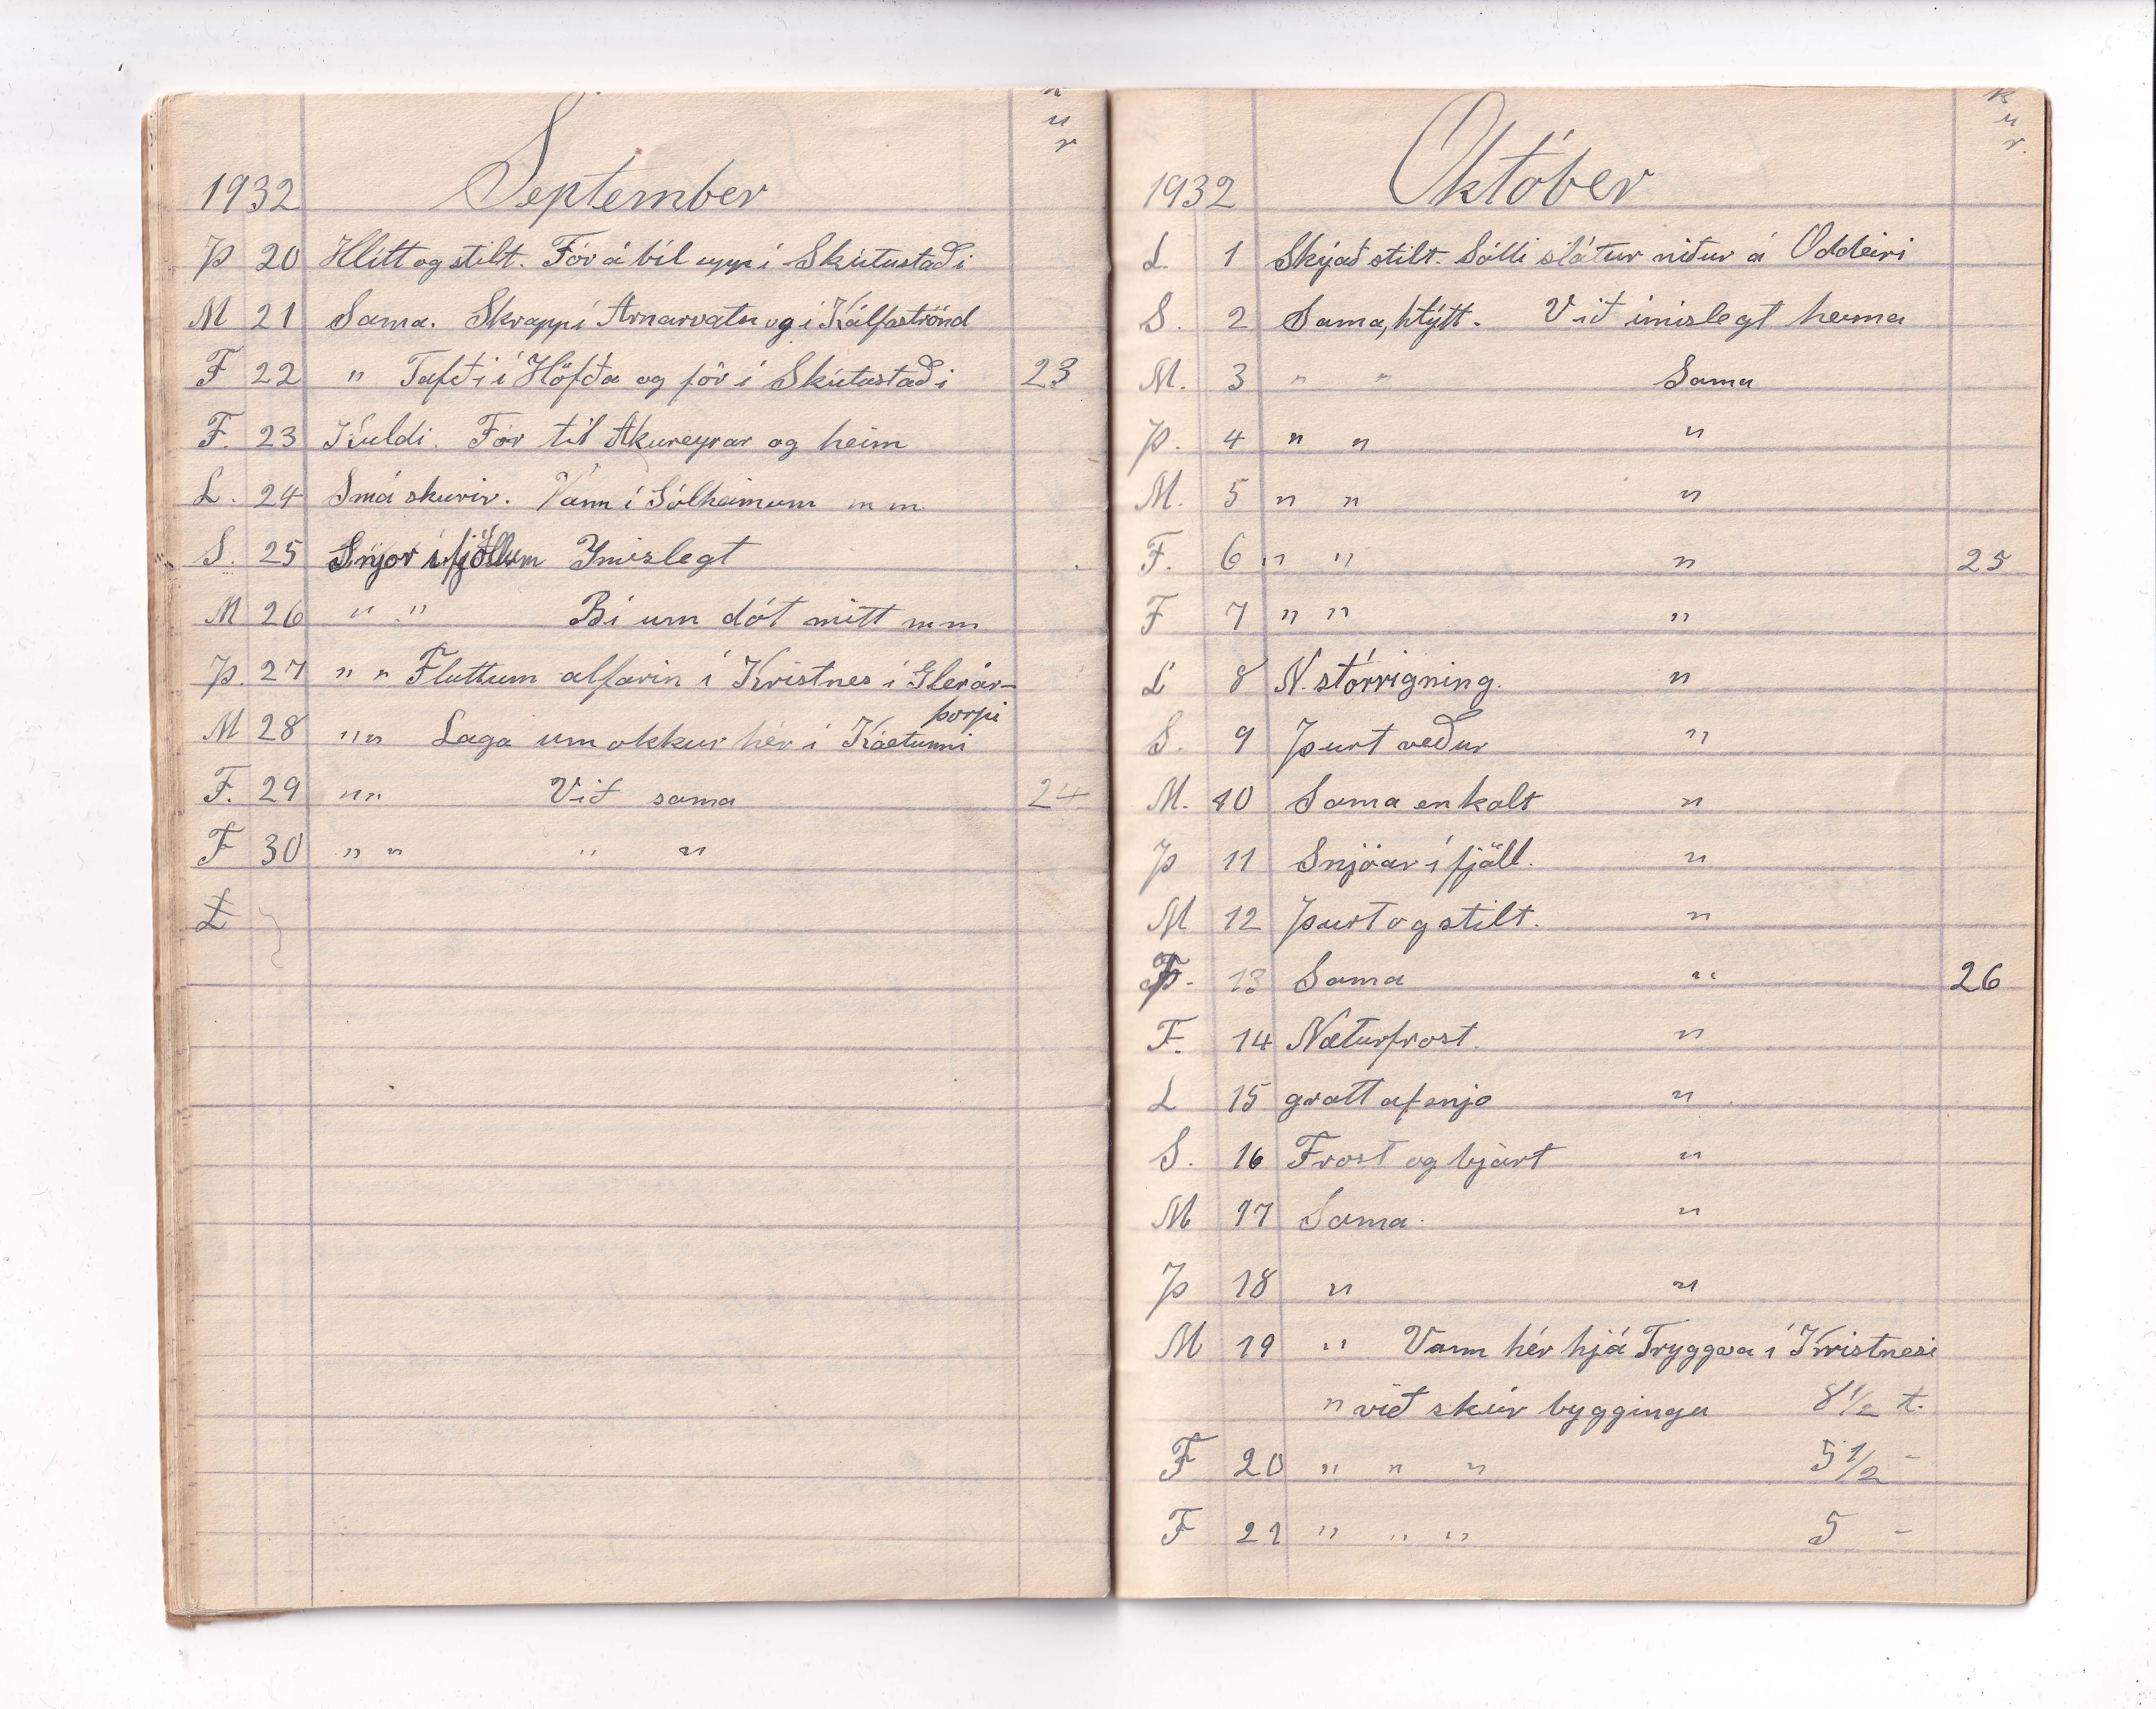 k
u
r
1932 September
Þ 20 Hlítt og stilt. Fór á bíl upp í Skútustaði
M 21 Sama. Skrapp í Arnarvatn og í Kálfströnd
F 22 " Tafði í Höfða og fór í Skútustaði 23
F. 23 Kuldi. Fór til Akureyrar og heim
L. 24 Smá skurir. Vann í Sólheimum m m
S. 25 Snjór í fjöllum Ymislegt
M 26 " " Bí um dót mitt m m
Þ. 27 " " Fluttum alfarin í Kristnes í Glerár-
þorpi
M 28 " " Laga um okkur hér í
F. 29 " " Við sama 24
F 30 " " " "
L
k
u
r.
1932 Október
L. 1 Skýað stilt. Sótti slátur niður á Oddeiri
S. 2 Sama, hlýtt. Við ímislegt heima
M. 3 " " Sama
Þ. 4 " " "
M. 5 " " "
F. 6 " " " 25
F 7 " " "
L 8 N. stórrigning. "
S. 9 Þurt veður "
M. 10 Sama en kalt "
Þ 11 Snjóar í fjäll. "
M 12 Þurt og stilt. "
F. 13 Sama " 26
F. 14 Næturfrost. "
L 15 gratt af snjo "
S. 16 Frost og bjart "
M 17 Sama. "
Þ 18 " "
M 19 " Vann hér hjá Tryggva í Kristnesi
" við skúr byggingu 8 1/2 t.
F 20 " " " 5 1/2 -
F 21 " " " 5 -